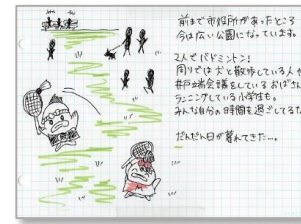 前まで市役所があったところ
今は広い公園になっています。
2人でバドミントン!
周りでは犬と散歩している人や
井戸端会議をしているおばさん
ランニングしている小学生も。
みんな自分の時間を過ごしてる
だんだん日が暮れてきた…。